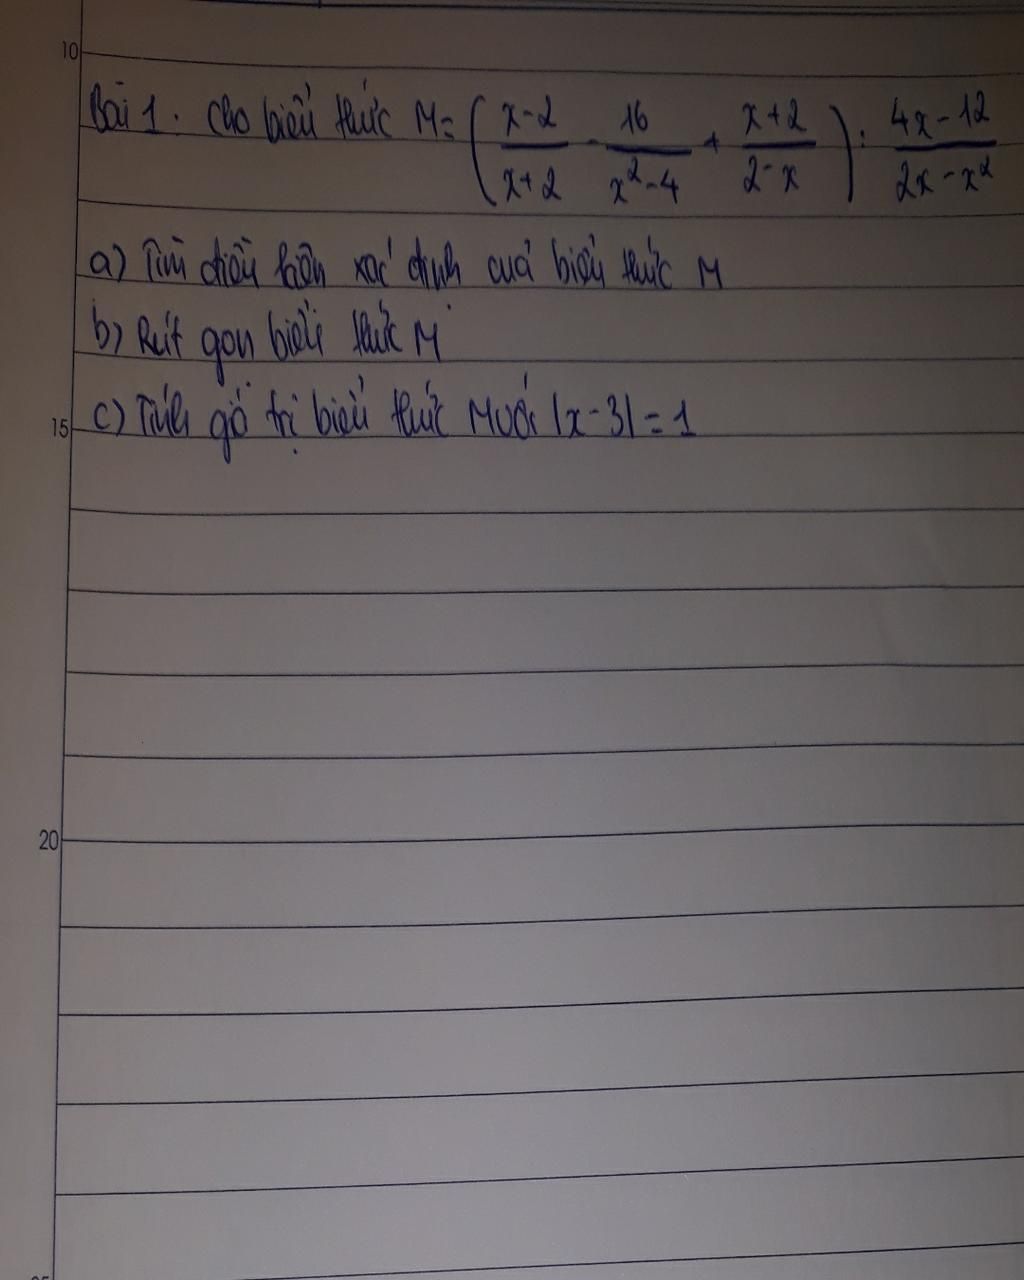 10
Bài 1. Cho biểu thức M= (x-2/x+2 - 16/x²-4 + x+2/2-x) : 4x-12/2x-x²
a) Tìm điều kiện xác định của biểu thức M
b) Rút gọn biểu thức M
15 c) Tính giá trị biểu thức M với |x-3| = 1
20